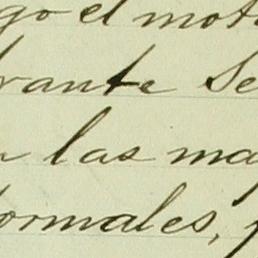 go el mot
rante Se
las ma
ormales,